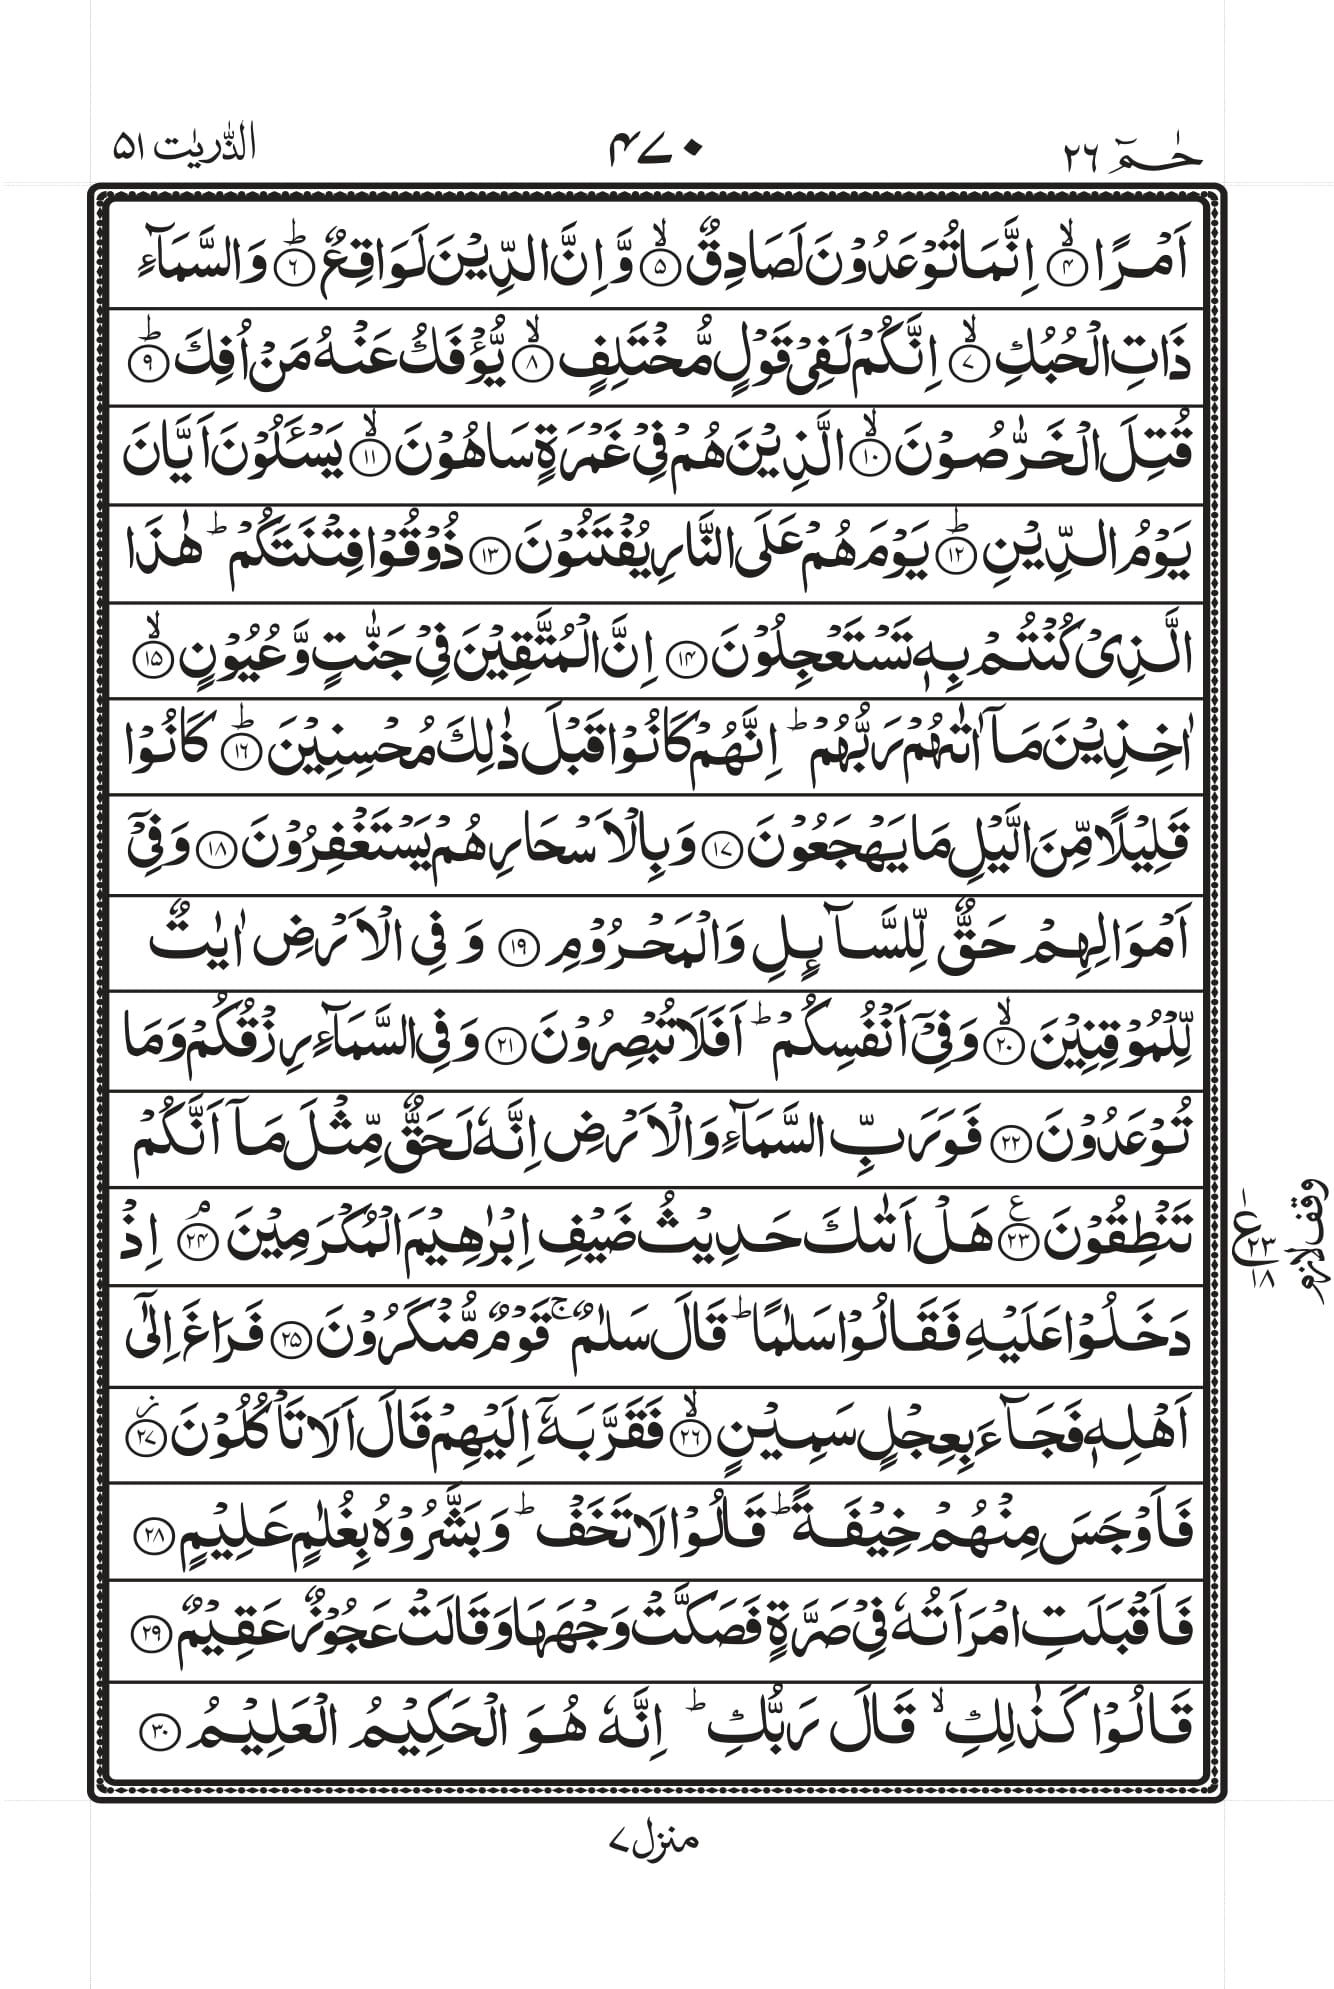 حٰـمٓ ٢٦
۴۷۰
الذّٰرِیٰت ۵۱
اَمۡرًا ۙ﴿۴﴾ اِنَّمَا تُوۡعَدُوۡنَ لَصَادِقٌ ۙ﴿۵﴾ وَّ اِنَّ الدِّیۡنَ لَوَاقِعٌ ؕ﴿۶﴾ وَالسَّمَآءِ
ذَاتِ الۡحُبُکِ ۙ﴿۷﴾ اِنَّکُمۡ لَفِیۡ قَوۡلٍ مُّخۡتَلِفٍ ۙ﴿۸﴾ یُّؤۡفَکُ عَنۡہُ مَنۡ اُفِکَ ؕ﴿۹﴾
قُتِلَ الۡخَرّٰصُوۡنَ ۙ﴿۱۰﴾ الَّذِیۡنَ ہُمۡ فِیۡ غَمۡرَۃٍ سَاہُوۡنَ ۙ﴿۱۱﴾ یَسۡـَٔلُوۡنَ اَیَّانَ
یَوۡمُ الدِّیۡنِ ؕ﴿۱۲﴾ یَوۡمَ ہُمۡ عَلَی النَّارِ یُفۡتَنُوۡنَ ﴿۱۳﴾ ذُوۡقُوۡا فِتۡنَتَکُمۡ ؕ ہٰذَا
الَّذِیۡ کُنۡتُمۡ بِہٖ تَسۡتَعۡجِلُوۡنَ ﴿۱۴﴾ اِنَّ الۡمُتَّقِیۡنَ فِیۡ جَنّٰتٍ وَّعُیُوۡنٍ ۙ﴿۱۵﴾
اٰخِذِیۡنَ مَاۤ اٰتٰہُمۡ رَبُّہُمۡ ؕ اِنَّہُمۡ کَانُوۡا قَبۡلَ ذٰلِکَ مُحۡسِنِیۡنَ ؕ﴿۱۶﴾ کَانُوۡا
قَلِیۡلًا مِّنَ الَّیۡلِ مَا یَہۡجَعُوۡنَ ﴿۱۷﴾ وَبِالۡاَسۡحَارِ ہُمۡ یَسۡتَغۡفِرُوۡنَ ﴿۱۸﴾ وَفِیۡۤ
اَمۡوَالِہِمۡ حَقٌّ لِّلسَّآئِلِ وَالۡمَحۡرُوۡمِ ﴿۱۹﴾ وَ فِی الۡاَرۡضِ اٰیٰتٌ
لِّلۡمُوۡقِنِیۡنَ ۙ﴿۲۰﴾ وَفِیۡۤ اَنۡفُسِکُمۡ ؕ اَفَلَا تُبۡصِرُوۡنَ ﴿۲۱﴾ وَفِی السَّمَآءِ رِزۡقُکُمۡ وَمَا
تُوۡعَدُوۡنَ ﴿۲۲﴾ فَوَرَبِّ السَّمَآءِ وَالۡاَرۡضِ اِنَّہٗ لَحَقٌّ مِّثۡلَ مَاۤ اَنَّکُمۡ
تَنۡطِقُوۡنَ ﴿۲۳﴾ ع ہَلۡ اَتٰىکَ حَدِیۡثُ ضَیۡفِ اِبۡرٰہِیۡمَ الۡمُکۡرَمِیۡنَ ۘ﴿۲۴﴾ اِذۡ
دَخَلُوۡا عَلَیۡہِ فَقَالُوۡا سَلٰمًا ؕ قَالَ سَلٰمٌ ۚ قَوۡمٌ مُّنۡکَرُوۡنَ ﴿۲۵﴾ فَرَاغَ اِلٰۤی
اَہۡلِہٖ فَجَآءَ بِعِجۡلٍ سَمِیۡنٍ ۙ﴿۲۶﴾ فَقَرَّبَہٗۤ اِلَیۡہِمۡ قَالَ اَلَا تَاۡکُلُوۡنَ ۫﴿۲۷﴾
فَاَوۡجَسَ مِنۡہُمۡ خِیۡفَۃً ؕ قَالُوۡا لَا تَخَفۡ ؕ وَبَشَّرُوۡہُ بِغُلٰمٍ عَلِیۡمٍ ﴿۲۸﴾
فَاَقۡبَلَتِ امۡرَاَتُہٗ فِیۡ صَرَّۃٍ فَصَکَّتۡ وَجۡہَہَا وَقَالَتۡ عَجُوۡزٌ عَقِیۡمٌ ﴿۲۹﴾
قَالُوۡا کَذٰلِکِ ۙ قَالَ رَبُّکِ ؕ اِنَّہٗ ہُوَ الۡحَکِیۡمُ الۡعَلِیۡمُ ﴿۳۰﴾
وقف لازم
١
ع
٢٣
١٨
منزل ۷